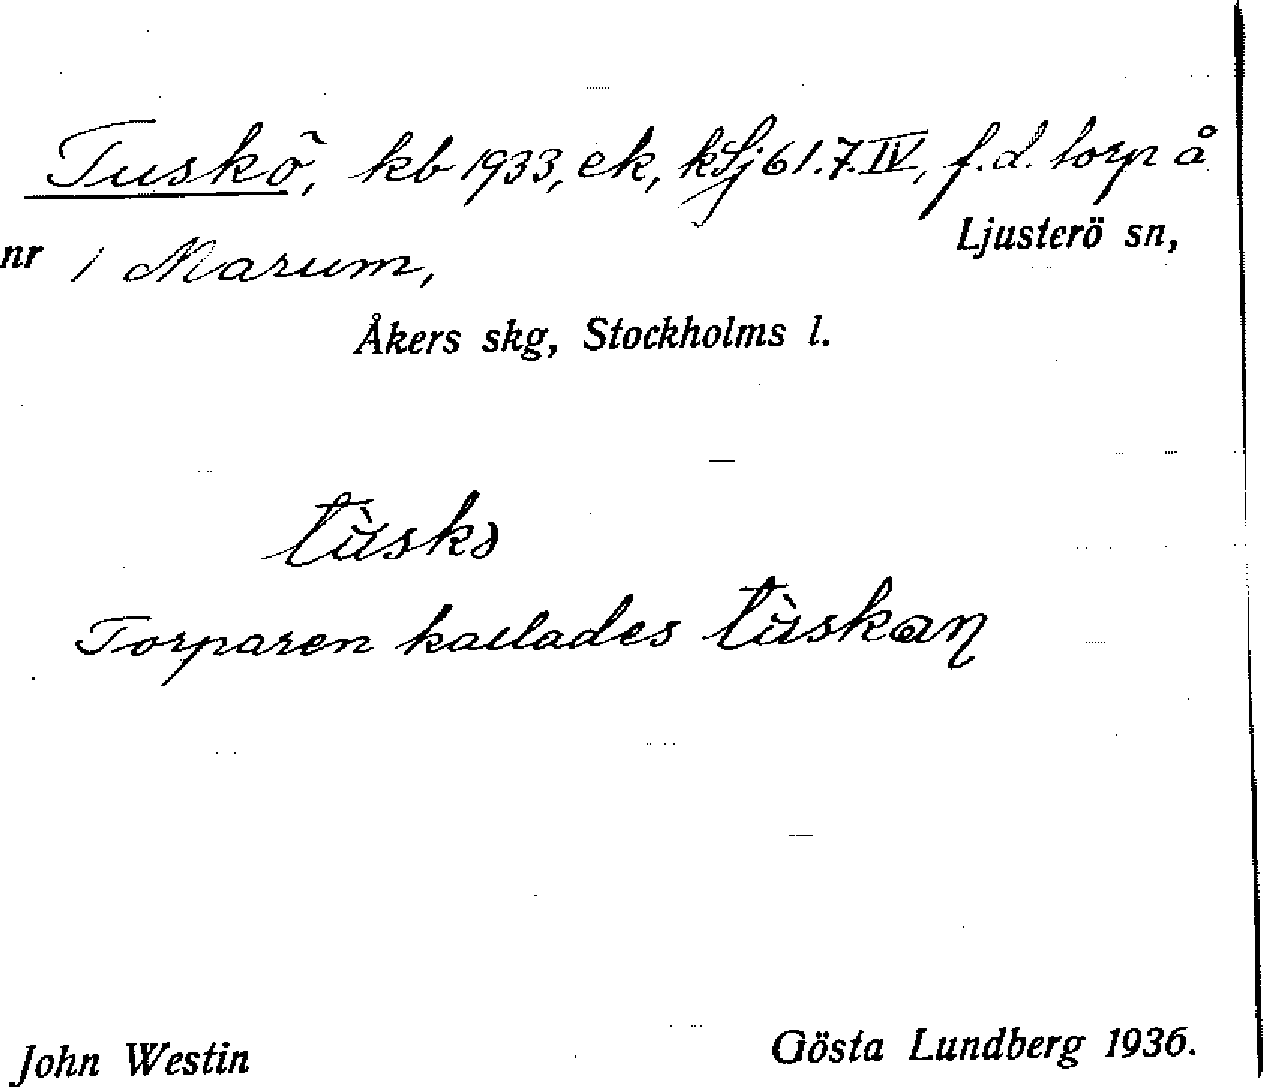 Tuskö, kb 1933, ek, kSj 61.7.IV, f.d. torp å
Ljusterö sn,
nr 1 Marum,
Åkers skg, Stockholms l.
tùskɔ
Torparen kallades tùskan
John Westin
Gösta Lundberg 1936.